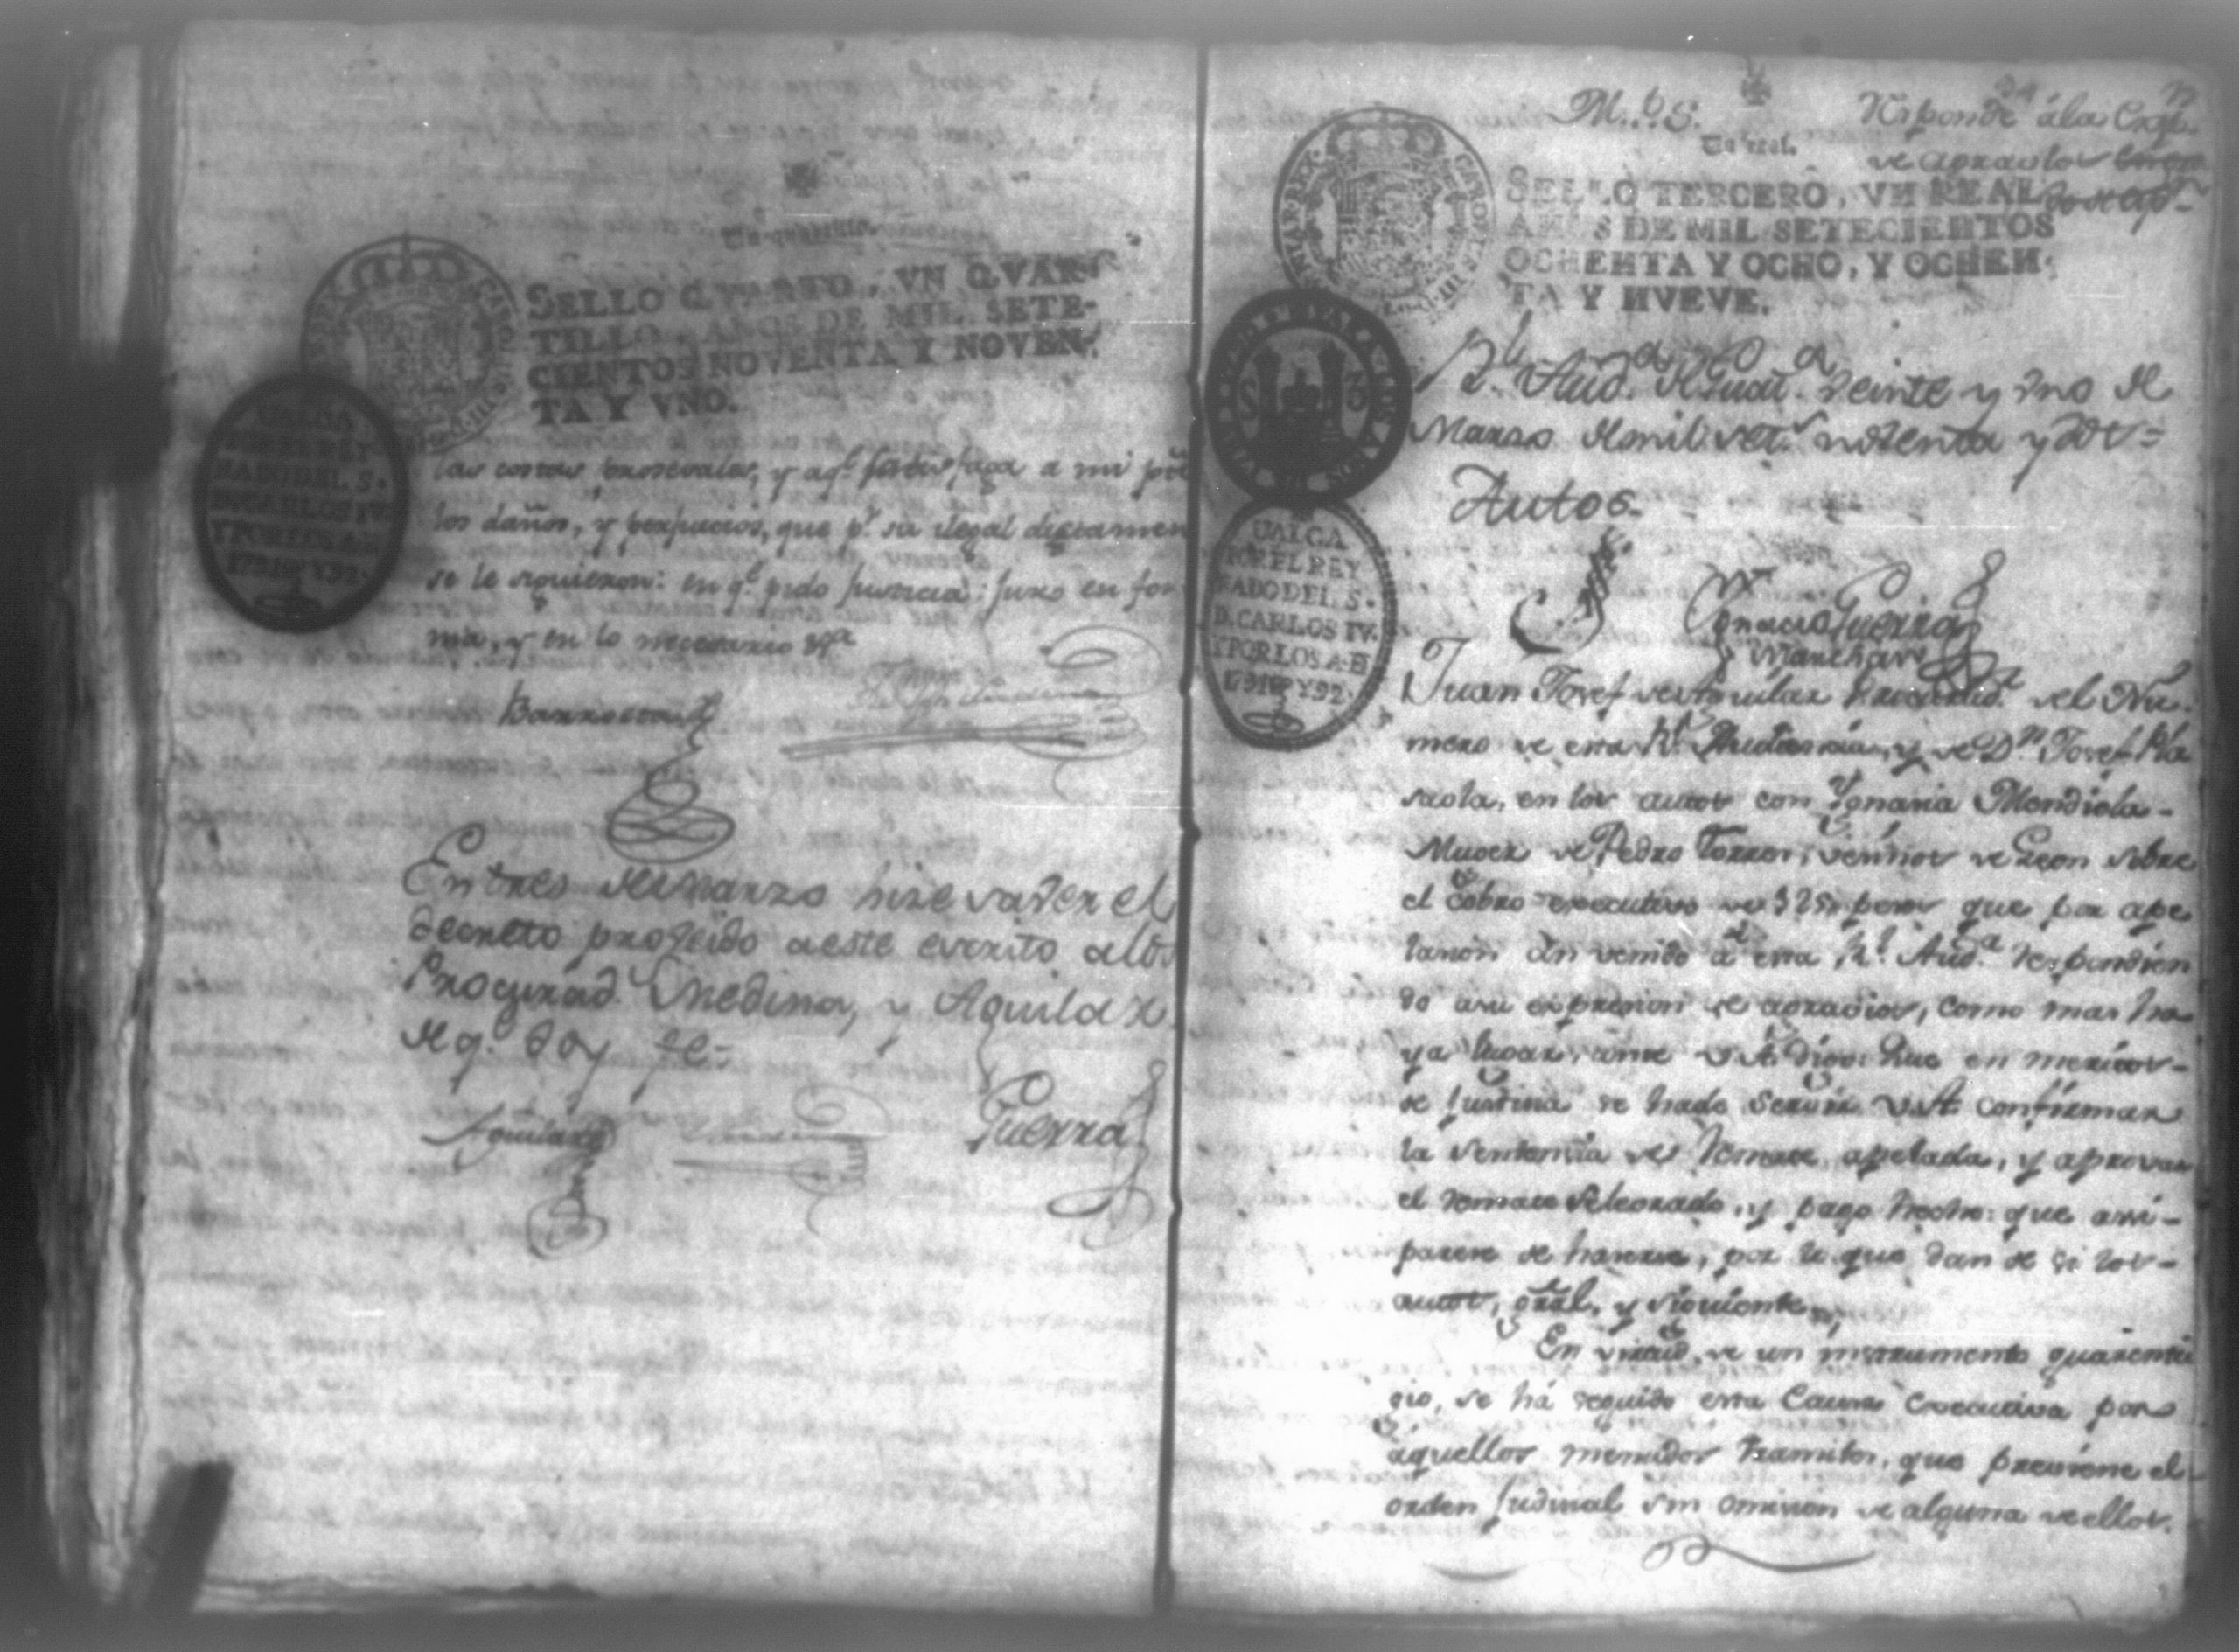 Un quartillo.
SELLO QVARTO, VN QVAR-
TILLO, AÑOS DE MIL SETE-
CIENTOS NOVENTA Y NOVEN-
TA Y VNO.
VALGA
POR EL REY
NADO DEL S.
D. CARLOS IV.
Y POR LOS A. D
1791 Y 92.
las costas procesales, y aq.e satisfaga a mi p.te
los daños, y perjuicios, que p.r su ilegal dictamen
se le siguieron: en q.e pido Justicia: Juro en for-
ma, y en lo necesario &.a
En tres de marzo hize saver el
decreto proveido a este escrito alos
Procurad.s Medina, y Aguilar
de q.e doy fe=
Aguilar
Guerra
M. P. S.
Responde á la Exp.n
de agravios
Un real.
SELLO TERCERO, VN REAL
AÑOS DE MIL SETECIENTOS
OCHENTA Y OCHO, Y OCHEN-
TA Y NVEVE.
VALGA
POR EL REY
NADO DEL S.
D. CARLOS IV.
Y POR LOS A. D
1791 Y 92.
R.l Aud.a de Guad.a veinte y uno de
Marzo de mil set.s noventa y dos=
Autos.
Ignacio Guerra
Manchar
Juan Josef de Aguilar Procurad.r del Nú-
mero de esta R.l Audiencia, y de D.n Josef Pla-
saola, en los autos con Ygnacia Mendiola
Muger de Pedro Torres, vecinos de Leon sobre
el cobro executivo de pesos que por ape-
lacion án venido á esta R.l Aud.a respondien-
do asu expresion de agravios, como mas ha-
ya lugar, ante V.A. digo: Que en meritos
de Justicia se hade Servir V.A. confirmar
la sentencia de Remate apelada, y aprovar
el remate selebrado, y pago hecho: que asi
parese se hacerse, por lo que dan de si los
autos, gral, y siguiente,
En virtud, de un instrumento guarenti-
gio, se há seguido esta Causa executiva por
áquellos menudos tramites, que previene el
orden Judicial sin omision de alguna de ellos.